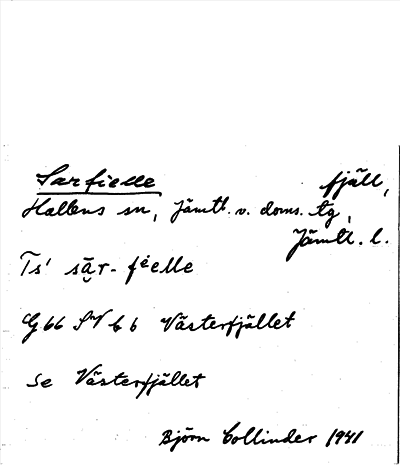 Sarfielle fjäll,
Hallens sn, Jämtl. v. doms. tg,
Jämtl. l.
Ts' sąr-fėelle
G 66 SV b 6 Västerfjället
se Västerfjället
Björn Collinder 1941